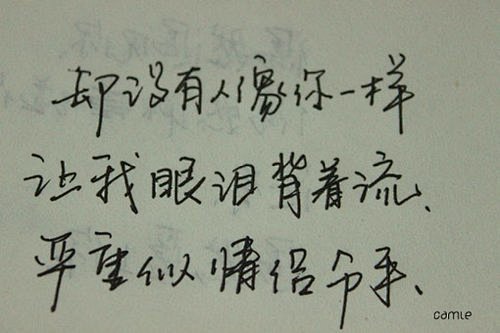 却没有人像你一样
让我眼泪背着流、
严重似情侣分手、
camle